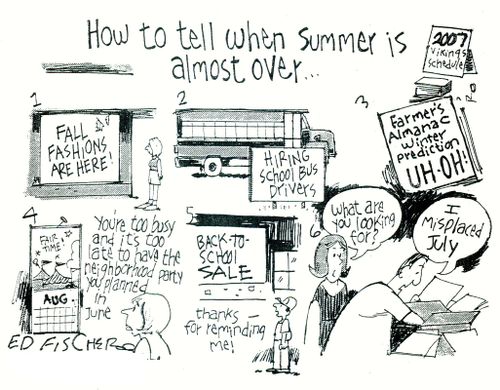 How to tell when summer is
almost over...
2007
Vikings
schedule
1
FALL
FASHIONS
ARE HERE!
2
HIRING
School Bus
Drivers
3
Farmer's
Almanac
Winter
prediction
UH-OH!
4
FAIR
TIME!
AUG
You're too busy
and it's too
late to have the
neighborhood party
you planned
in
June
5
BACK-TO-
SCHOOL
SALE
thanks —
for reminding
me!
6
What are
you looking
for?
I
Misplaced
July
ED FISCHER